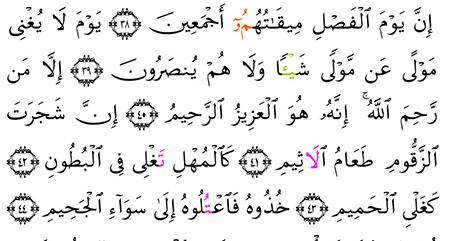 إِنَّ يَوْمَ ٱلْفَصْلِ مِيقَٰتُهُمُۥٓ أَجْمَعِينَ ﴿٣٨﴾ يَوْمَ لَا يُغْنِى
مَوْلًى عَن مَّوْلًى شَيْـًٔا وَلَا هُمْ يُنصَرُونَ ﴿٣٩﴾ إِلَّا مَن
رَّحِمَ ٱللَّهُ ۚ إِنَّهُۥ هُوَ ٱلْعَزِيزُ ٱلرَّحِيمُ ﴿٤٠﴾ إِنَّ شَجَرَتَ
ٱلزَّقُّومِ طَعَامُ ٱلَاثِيمِ ﴿٤١﴾ كَٱلْمُهْلِ تَغْلِى فِى ٱلْبُطُونِ ﴿٤٢﴾
كَغَلْىِ ٱلْحَمِيمِ ﴿٤٣﴾ خُذُوهُ فَٱعْتُلُوهُ إِلَىٰ سَوَآءِ ٱلْجَحِيمِ ﴿٤٤﴾